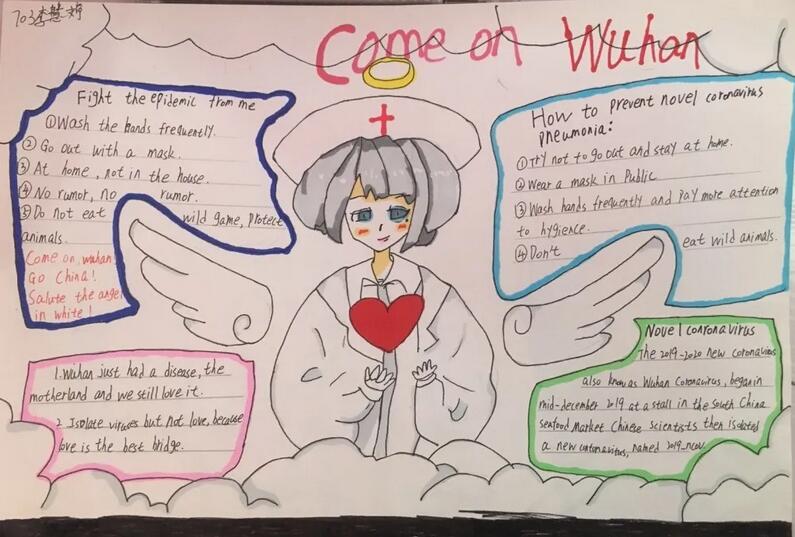 703李慧婷
Come on Wuhan
Fight the epidemic from me
①Wash the hands frequently.
② Go out with a mask.
③ At home, not in the house.
④ No rumor, no rumor.
⑤ Do not eat wild game, protect
animals.
Come on, wuhan!
Go China!
Salute the angel
in white!
How to prevent novel coronavirus
pneumonia:
①Try not to go out and stay at home.
②Wear a mask in Public
③Wash hands frequently and pay more attention
to hygience.
④Don't eat wild animals.
1.Wuhan just had a disease, the
motherland and we still love it.
2 Isolate viruses but not love, because
love is the best bridge.
Novel conronavirus
The 2019-2020 new coronavirus
also known as Wuhan Coronavirus, began in
mid-december 2019 at a stall in the South China
seafood Market Chinese scientists then isolated
a new coronavirus, named 2019_ncov